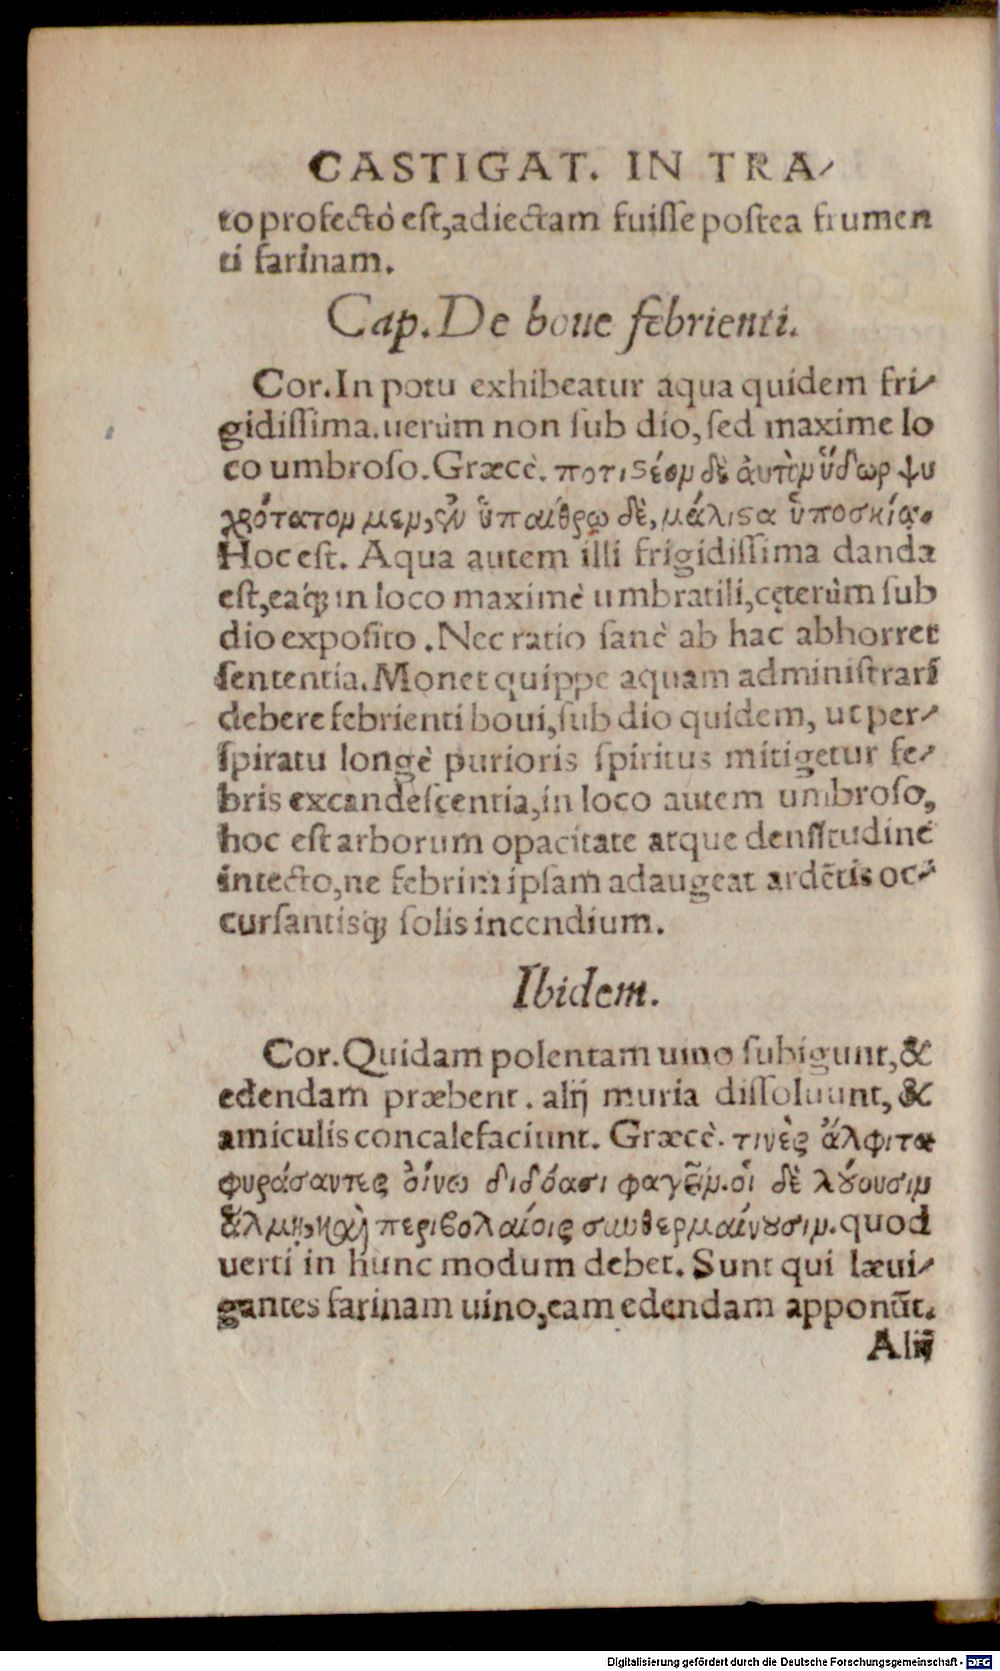 CASTIGAT. IN TRA-
to profectò est, adiectam fuisse postea frumen
ti farinam.
Cap. De boue febrienti.
Cor. In potu exhibeatur aqua quidem fri-
gidissima. uerùm non sub dio, sed maxime lo
co umbroso. Græcè. ποτιστέον δὲ ἀυτὸν ὕδωρ ψυ
χρότατον μεν, ἐν ὑπαίθρῳ δὲ, μάλιστα ὑποσκίῳ.
Hoc est. Aqua autem illi frigidissima danda
est, eaq́ꝫ in loco maximè umbratili, cęterùm sub
dio exposito. Nec ratio sanè ab hac abhorret
sententia. Monet quippe aquam administrari
debere febrienti boui, sub dio quidem, ut per-
spiratu longè purioris spiritus mitigetur fe-
bris excandescentia, in loco autem umbroso,
hoc est arborum opacitate atque densitudine
intecto, ne febrim ipsam adaugeat ardẽtis oc-
cursantisq́ꝫ solis incendium.
Ibidem.
Cor. Quidam polentam uino subigunt, &
edendam præbent. alij muria dissoluunt, &
amiculis concalefaciunt. Græcè. τινὲς ἄλφιτα
φυράσαντες ὀίνω διδόασι φαγεῖν. ὁι δὲ λύουσιν
ἅλμῃ, καὶ περιβολαίοις συνθερμαίνουσιν. quod
uerti in hunc modum debet. Sunt qui læui-
gantes farinam uino, eam edendam apponũt.
Alij
Digitalisierung gefördert durch die Deutsche Forschungsgemeinschaft - DFG